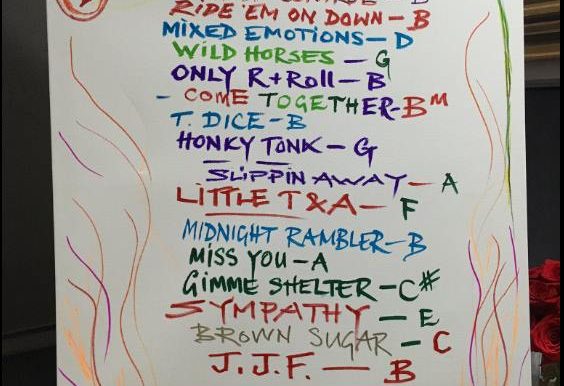 RIDE 'EM ON DOWN – B
MIXED EMOTIONS – D
WILD HORSES – G
ONLY R+ROLL – B
- COME TOGETHER – Bm
T. DICE – B
HONKY TONK – G
SLIPPIN AWAY – A
LITTLE T&A – F
MIDNIGHT RAMBLER – B
MISS YOU – A
GIMME SHELTER – C#
SYMPATHY – E
BROWN SUGAR – C
J.J.F. – B